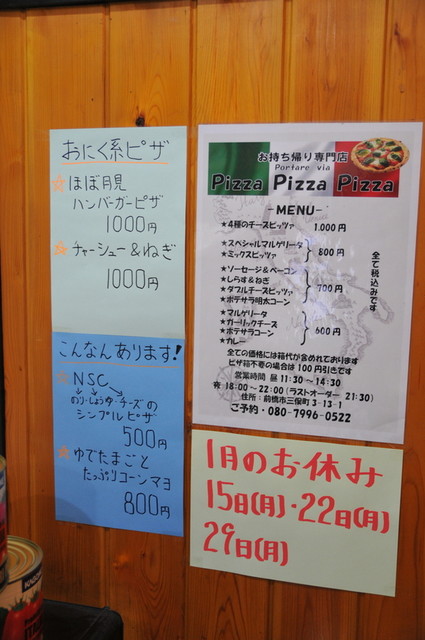 おにく系ピザ
ほぼ月見
ハンバーガーピザ
1000円
チャーシュー&ねぎ
1000円
こんなんあります!
NSC
のり・しょうゆ・チーズの
シンプルピザ
500円
ゆでたまごと
たっぷりコーンマヨ
800円
お持ち帰り専門店
Portare via
Pizza Pizza Pizza
-MENU-
★4種のチーズピッツァ 1,000円
★スペシャルマルゲリータ
★ミックスピッツァ
800円
★ソーセージ&ベーコン
★しらす&ねぎ
★ダブルチーズピッツァ
★ポテサラ明太コーン
700円
★マルゲリータ
★ガーリックチーズ
★ポテサラコーン
★カレー
600円
全て税込みです
全ての価格には箱代が含めれております
ピザ箱不要の場合は100円引きです
営業時間 昼 11:30~14:30
夜 18:00~22:00(ラストオーダー 21:30)
住所:前橋市三俣町3-13-1
ご予約・080-7996-0522
1月のお休み
15日(月)・22日(月)
29日(月)